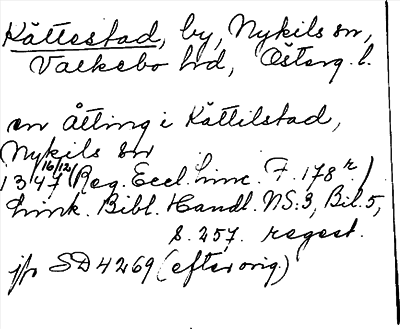 Kättestad, by, Nykils sn,
Valkebo hd, Österg. l.
en åtting i Kättilstad,
Nykils sn
1347 16/12 (Reg. Eccl. Linc. F. 178 r.)
Link. Bibl. Handl. NS.3, Bil. 5,
S. 257. regest.
jfr SD 4269 (efter orig.)